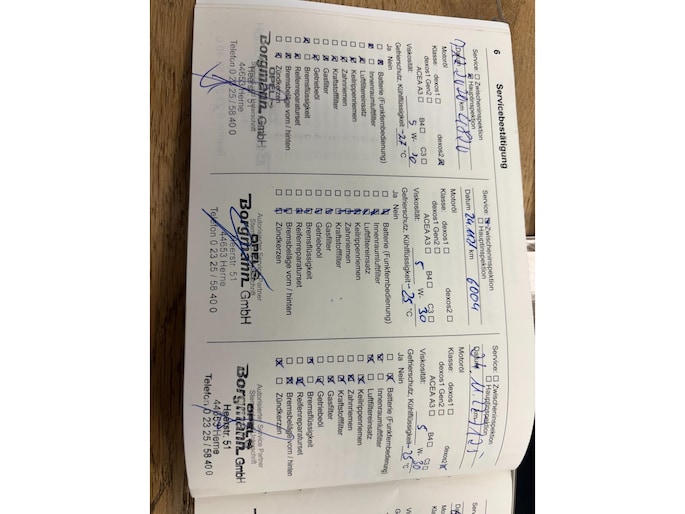 6 Servicebestätigung
Service: Zwischeninspektion
Hauptinspektion
km
Motoröl
Klasse: dexos1 dexos2
dexos1 Gen2 B4 C3
ACEA A3
Viskosität: 5 W- 30
Gefrierschutz, Kühlflüssigkeit -27 °C
Ja Nein
Batterie (Funkfernbedienung)
Innenraumluftfilter
Luftfiltereinsatz
Keilrippenriemen
Zahnriemen
Kraftstofffilter
Gasfilter
Getriebeöl
Bremsflüssigkeit
Reifenreparaturset
Bremsbeläge vorn / hinten
Zündkerzen
OPEL
Borgmann GmbH
Heerstr. 51
44653 Herne
Telefon 0 23 25 / 58 40 0
Service: Zwischeninspektion
Hauptinspektion
Datum km 6004
Motoröl
Klasse: dexos1 dexos2
dexos1 Gen2
ACEA A3 B4 C3
Viskosität: 5 W- 30
Gefrierschutz, Kühlflüssigkeit -25 °C
Ja Nein
Batterie (Funkfernbedienung)
Innenraumluftfilter
Luftfiltereinsatz
Keilrippenriemen
Zahnriemen
Kraftstofffilter
Gasfilter
Getriebeöl
Bremsflüssigkeit
Reifenreparaturset
Bremsbeläge vorn / hinten
Zündkerzen
Autorisierter Service Partner
OPEL
Borgmann GmbH
Heerstr. 51
44653 Herne
Telefon 0 23 25 / 58 40 0
Service: Zwischeninspektion
Hauptinspektion
km
Motoröl
Klasse: dexos1 dexos2
dexos1 Gen2
ACEA A3 B4 C3
Viskosität: 5 W- 30
Gefrierschutz, Kühlflüssigkeit -35 °C
Ja Nein
Batterie (Funkfernbedienung)
Innenraumluftfilter
Luftfiltereinsatz
Keilrippenriemen
Zahnriemen
Kraftstofffilter
Gasfilter
Getriebeöl
Bremsflüssigkeit
Reifenreparaturset
Bremsbeläge vorn / hinten
Zündkerzen
Autorisierter Service Partner
OPEL
Borgmann GmbH
Heerstr. 51
44653 Herne
Telefon 0 23 25 / 58 40 0